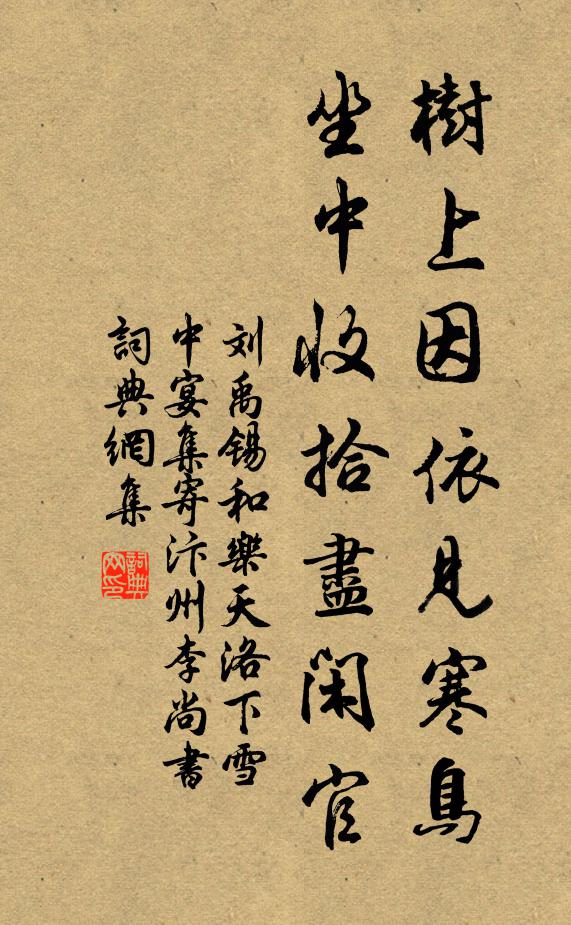 樹上因依見寒鳥
坐中收拾盡閑官
刘禹锡和樂天洛下雪
中宴集寄汴州李尚書
詞典網集
詞典网印